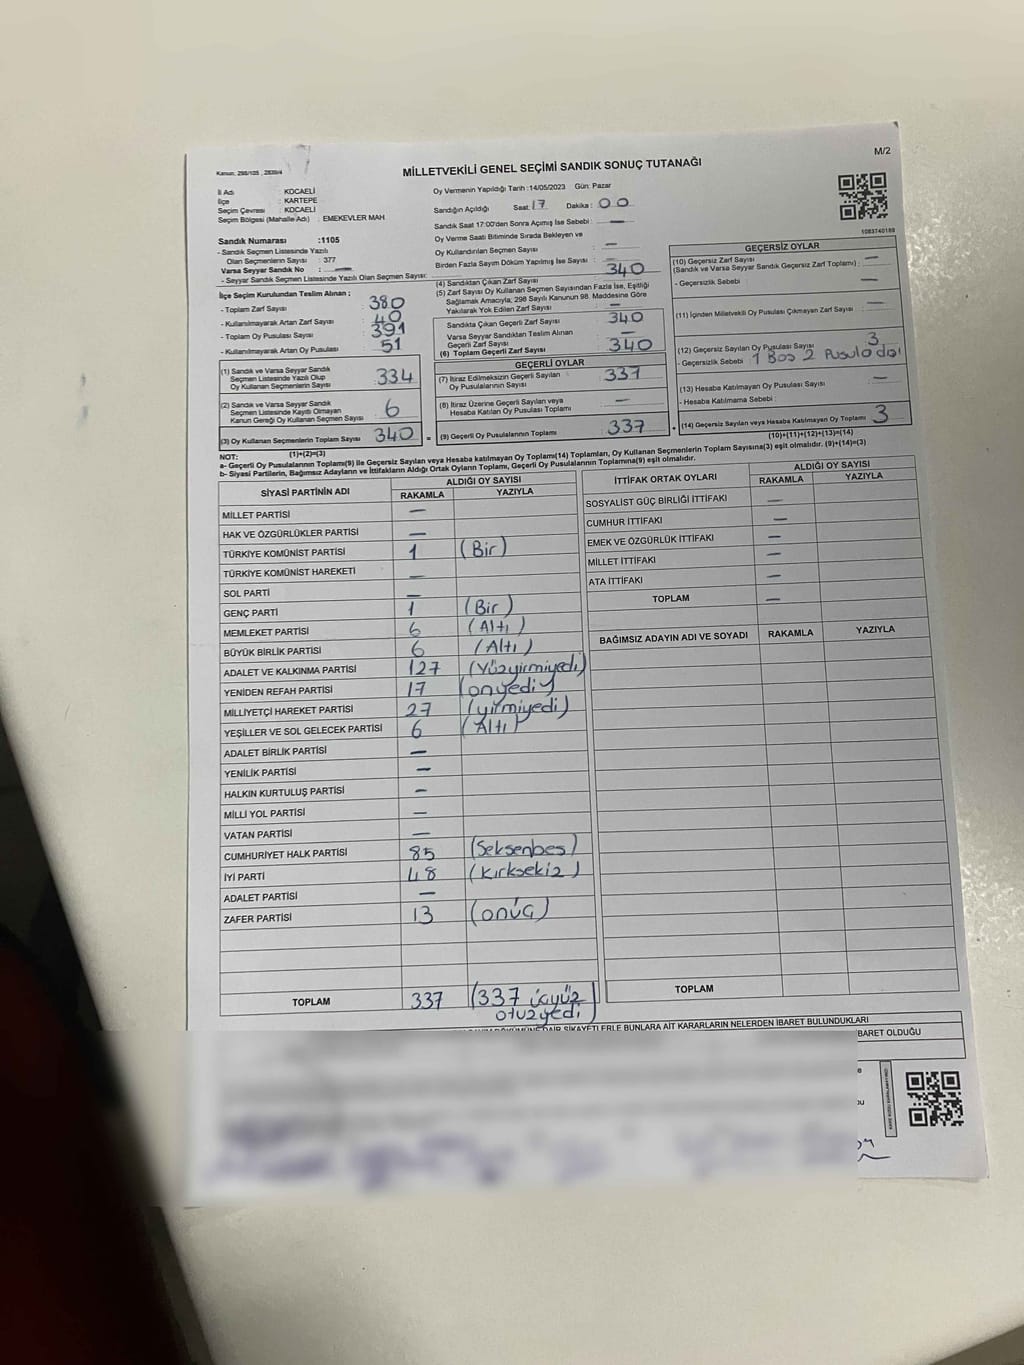 Kanun: 298/105 , 2839/4
M/2
MİLLETVEKİLİ GENEL SEÇİMİ SANDIK SONUÇ TUTANAĞI
İl Adı : KOCAELİ
İlçe : KARTEPE
Seçim Çevresi : KOCAELİ
Seçim Bölgesi (Mahalle Adı) : EMEKEVLER MAH
Sandık Numarası :1105
- Sandık Seçmen Listesinde Yazılı
Olan Seçmenlerin Sayısı : 377
Varsa Seyyar Sandık No : —
- Seyyar Sandık Seçmen Listesinde Yazılı Olan Seçmen Sayısı:
İlçe Seçim Kurulundan Teslim Alınan ;
- Toplam Zarf Sayısı : 380
- Kullanılmayarak Artan Zarf Sayısı : 40
- Toplam Oy Pusulası Sayısı : 391
- Kullanılmayarak Artan Oy Pusulası : 51
(1) Sandık ve Varsa Seyyar Sandık
Seçmen Listesinde Yazılı Olup
Oy Kullanan Seçmenlerin Sayısı : 334
(2) Sandık ve Varsa Seyyar Sandık
Seçmen Listesinde Kayıtlı Olmayan
Kanun Gereği Oy Kullanan Seçmen Sayısı : 6
(3) Oy Kullanan Seçmenlerin Toplam Sayısı : 340 =
(1)+(2)=(3)
Oy Vermenin Yapıldığı Tarih :14/05/2023 Gün: Pazar
Sandığın Açıldığı Saat: 17 Dakika : 00
Sandık Saat 17:00'den Sonra Açımış İse Sebebi : —
Oy Verme Saati Bitiminde Sırada Bekleyen ve
Oy Kullandırılan Seçmen Sayısı : —
Birden Fazla Sayım Döküm Yapılmış İse Sayısı : —
(4) Sandıktan Çıkan Zarf Sayısı : 340
(5) Zarf Sayısı Oy Kullanan Seçmen Sayısından Fazla İse, Eşitliği
Sağlamak Amacıyla, 298 Sayılı Kanunun 98. Maddesine Göre
Yakılarak Yok Edilen Zarf Sayısı : —
Sandıkta Çıkan Geçerli Zarf Sayısı : 340
Varsa Seyyar Sandıktan Teslim Alınan
Geçerli Zarf Sayısı : —
(6) Toplam Geçerli Zarf Sayısı : 340
GEÇERLİ OYLAR
(7) İtiraz Edilmeksizin Geçerli Sayılan
Oy Pusulalarının Sayısı : 337
(8) İtiraz Üzerine Geçerli Sayılan veya
Hesaba Katılan Oy Pusulası Toplamı : —
(9) Geçerli Oy Pusulalarının Toplamı : 337 +
1083740180
GEÇERSİZ OYLAR
(10) Geçersiz Zarf Sayısı
(Sandık ve Varsa Seyyar Sandık Geçersiz Zarf Toplamı) : —
- Geçersizlik Sebebi : —
(11) İçinden Milletvekili Oy Pusulası Çıkmayan Zarf Sayısı : —
(12) Geçersiz Sayılan Oy Pusulası Sayısı : 3
- Geçersizlik Sebebi : 1 Boş 2 Pusulada!
(13) Hesaba Katılmayan Oy Pusulası Sayısı : —
- Hesaba Katılmama Sebebi :
(14) Geçersiz Sayılan veya Hesaba Katılmayan Oy Toplamı : 3
(10)+(11)+(12)+(13)=(14)
NOT:
a- Geçerli Oy Pusulalarının Toplamı(9) ile Geçersiz Sayılan veya Hesaba katılmayan Oy Toplamı(14) Toplamları, Oy Kullanan Seçmenlerin Toplam Sayısına(3) eşit olmalıdır. (9)+(14)=(3)
b- Siyasi Partilerin, Bağımsız Adayların ve İttifakların Aldığı Ortak Oyların Toplamı, Geçerli Oy Pusulalarının Toplamına(9) eşit olmalıdır.
SİYASİ PARTİNİN ADI ALDIĞI OY SAYISI
RAKAMLA YAZIYLA
MİLLET PARTİSİ —
HAK VE ÖZGÜRLÜKLER PARTİSİ —
TÜRKİYE KOMÜNİST PARTİSİ 1 (Bir)
TÜRKİYE KOMÜNİST HAREKETİ —
SOL PARTİ —
GENÇ PARTİ 1 (Bir)
MEMLEKET PARTİSİ 6 (Altı)
BÜYÜK BİRLİK PARTİSİ 6 (Altı)
ADALET VE KALKINMA PARTİSİ 127 (Yüzyirmiyedi)
YENİDEN REFAH PARTİSİ 17 (onyedi)
MİLLİYETÇİ HAREKET PARTİSİ 27 (yirmiyedi)
YEŞİLLER VE SOL GELECEK PARTİSİ 6 (Altı)
ADALET BİRLİK PARTİSİ —
YENİLİK PARTİSİ —
HALKIN KURTULUŞ PARTİSİ —
MİLLİ YOL PARTİSİ —
VATAN PARTİSİ —
CUMHURİYET HALK PARTİSİ 85 (Seksenbeş)
İYİ PARTİ 48 (Kırksekiz)
ADALET PARTİSİ —
ZAFER PARTİSİ 13 (onüç)
TOPLAM 337 (337 üçyüz
otuzyedi)
İTTİFAK ORTAK OYLARI ALDIĞI OY SAYISI
RAKAMLA YAZIYLA
SOSYALİST GÜÇ BİRLİĞİ İTTİFAKI —
CUMHUR İTTİFAKI —
EMEK VE ÖZGÜRLÜK İTTİFAKI —
MİLLET İTTİFAKI —
ATA İTTİFAKI —
TOPLAM —
BAĞIMSIZ ADAYIN ADI VE SOYADI RAKAMLA YAZIYLA
TOPLAM
DÖKÜMÜNE DAİR ŞİKAYETLERLE BUNLARA AİT KARARLARIN NELERDEN İBARET BULUNDUKLARI
BARET OLDUĞU